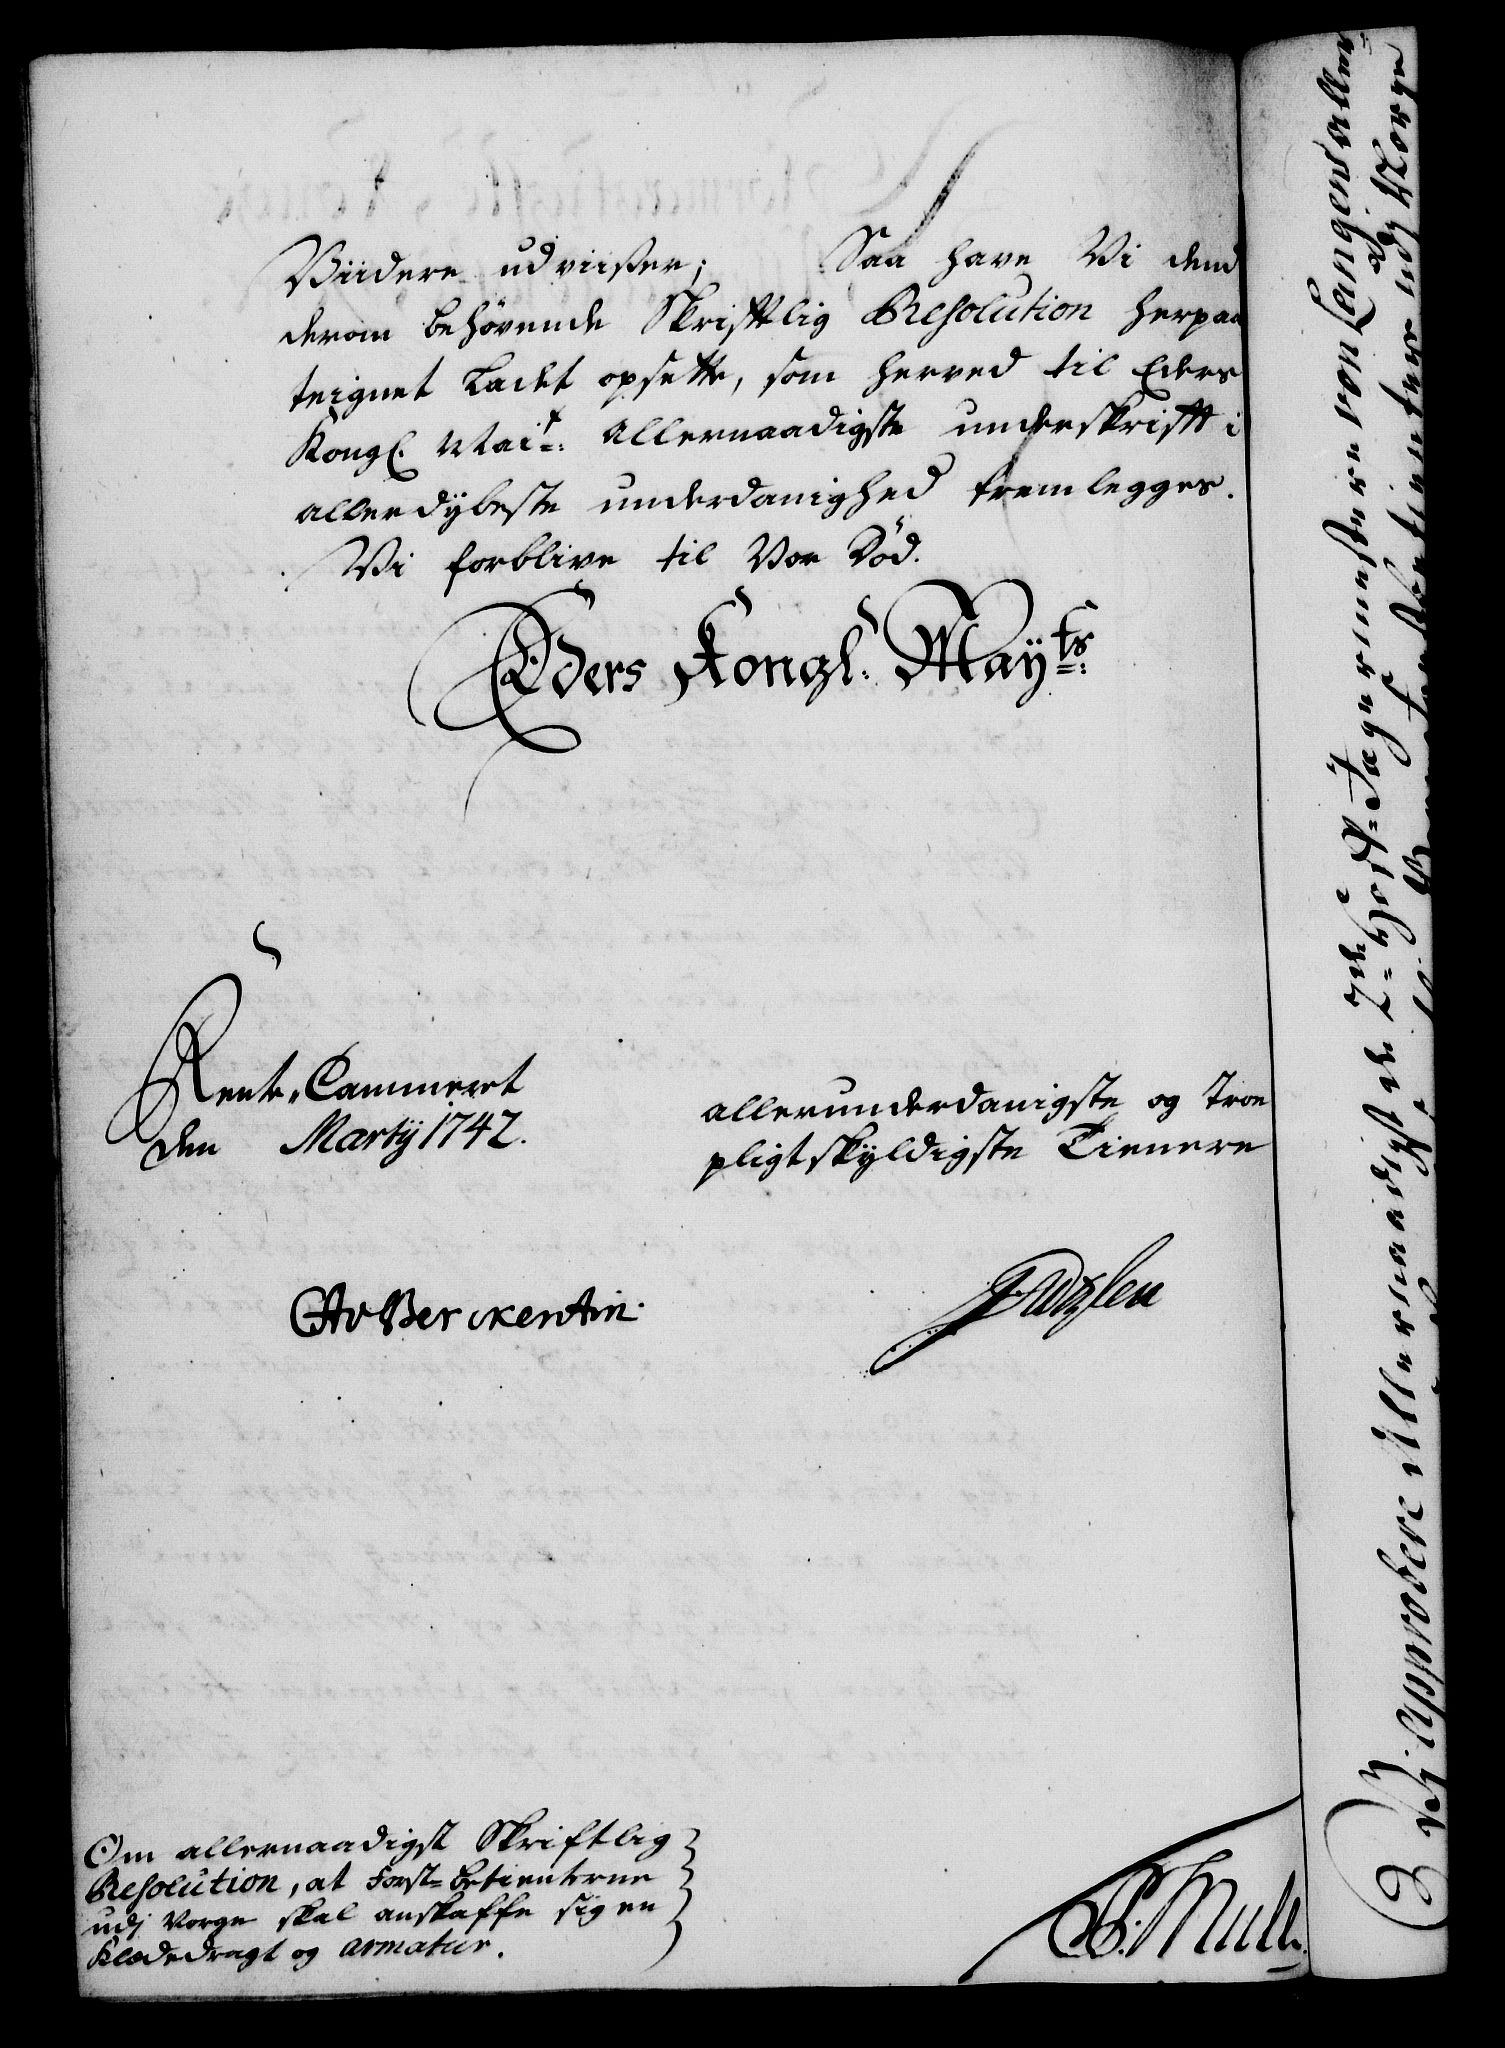 Viidere udviiser; Saa have Vi dend
derom behövende Skrifftlig Resolution herpaa
teignet ladet opsette, som herved til Eders
Kongl. Mai.t: allernaadigste underskrifft i
allerdybeste underdanighed fremlegges.
Vi forblive til Vor Död.
Eders Kongl: Maÿts:
Rente-Cammeret
den Martij 1742.
allerunderdanigste og troe
pligtskÿldigste Tienere
CAvBerckentin.
Om allernaadigst Skriftlig
Resolution, at Forst-betienterne
udj Norge skal anskaffe sig en
Klædedragt og armatur.
Vj approbere Allernaadigst de 2de Hoff-Jægermestere von Langens aller
udj Norge